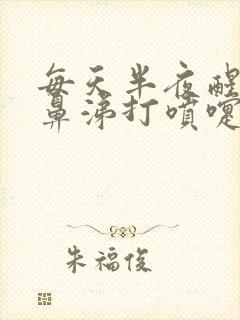 每天半夜醒
鼻涕打噴嚏
朱福俊